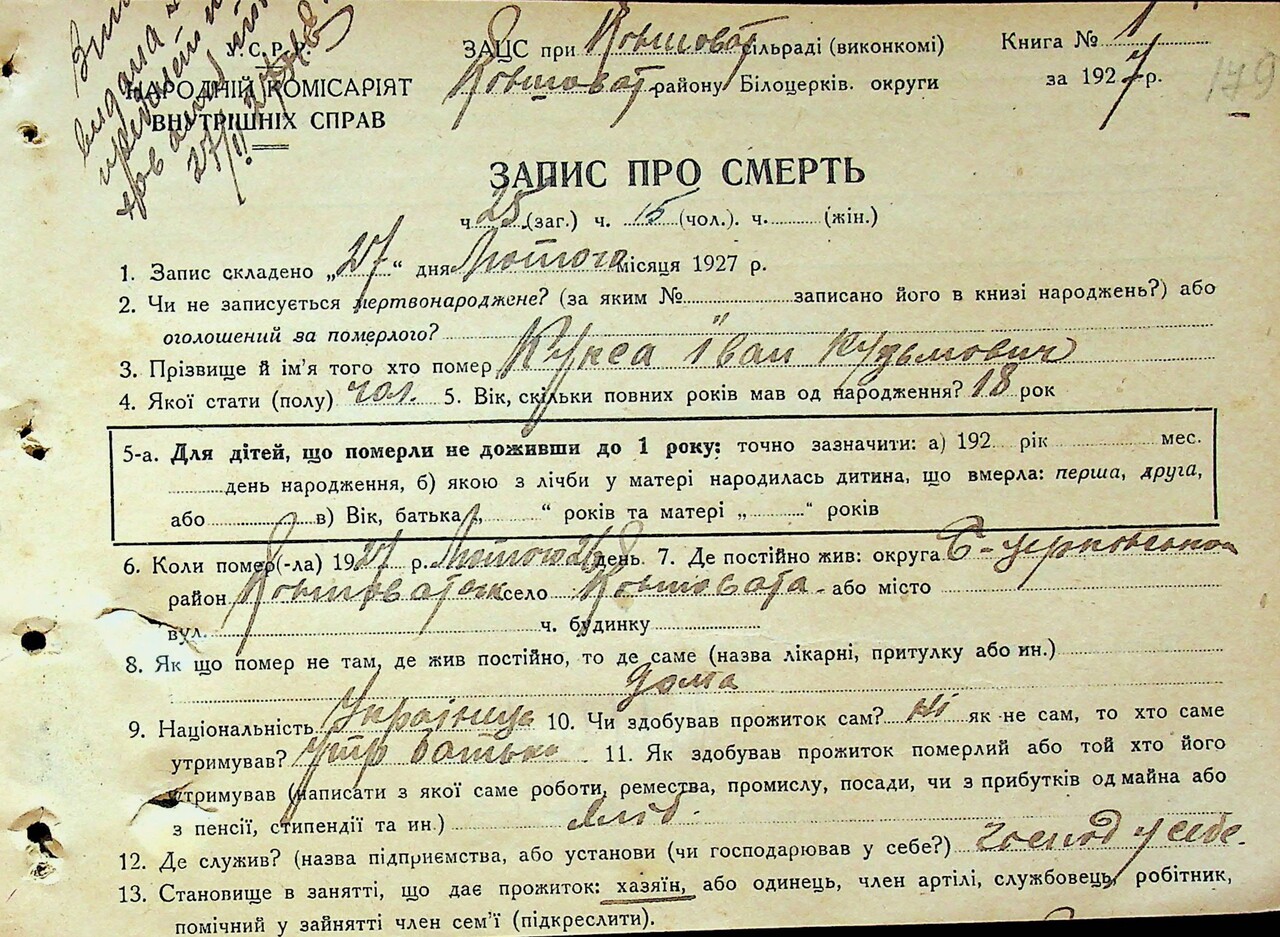 У.С.Р.Р.
НАРОДНІЙ КОМІСАРІЯТ
ВНУТРІШНІХ СПРАВ
27/II
ЗАЦС при Ковшоват сільраді (виконкомі)
Ковшоват району Білоцерків. округи
Книга № 1
за 1927 р.
179
ЗАПИС ПРО СМЕРТЬ
ч 25 (заг.) ч. 15 (чол.). ч. (жін.)
1. Запис складено „27“ дня Лютого місяця 1927 р.
2. Чи не записується мертвонароджене? (за яким № записано його в книзі народжень?) або
оголошений за померлого? "
3. Прізвище й ім'я того хто помер Кукса Іван Кузьмович
4. Якої стати (полу) чол. 5. Вік, скільки повних років мав од народження? 18 рок
5-а. Для дітей, що померли не доживши до 1 року: точно зазначити: а) 192 рік мес.
день народження, б) якою з лічби у матері народилась дитина, що вмерла: перша, друга,
або в) Вік, батька „ “ років та матері „ “ років
6. Коли помер(-ла) 1927 р. Лютого 26 день 7. Де постійно жив: округа Б-церковської
район Ковшоватськ село Ковшовата - або місто
вул. ч. будинку
8. Як що помер не там, де жив постійно, то де саме (назва лікарні, притулку або ин.)
дома
9. Національність Українець 10. Чи здобував прожиток сам? ні як не сам, то хто саме
утримував? утр батько 11. Як здобував прожиток померлий або той хто його
утримував (написати з якої саме роботи, ремества, промислу, посади, чи з прибутків од майна або
з пенсії, стипендії та ин.) хліб.
12. Де служив? (назва підприємства, або установи (чи господарював у себе?) господ у себе.
13. Становище в занятті, що дає прожиток: хазяїн, або одинець, член артілі, службовець, робітник,
помічний у зайнятті член сем'ї (підкреслити).